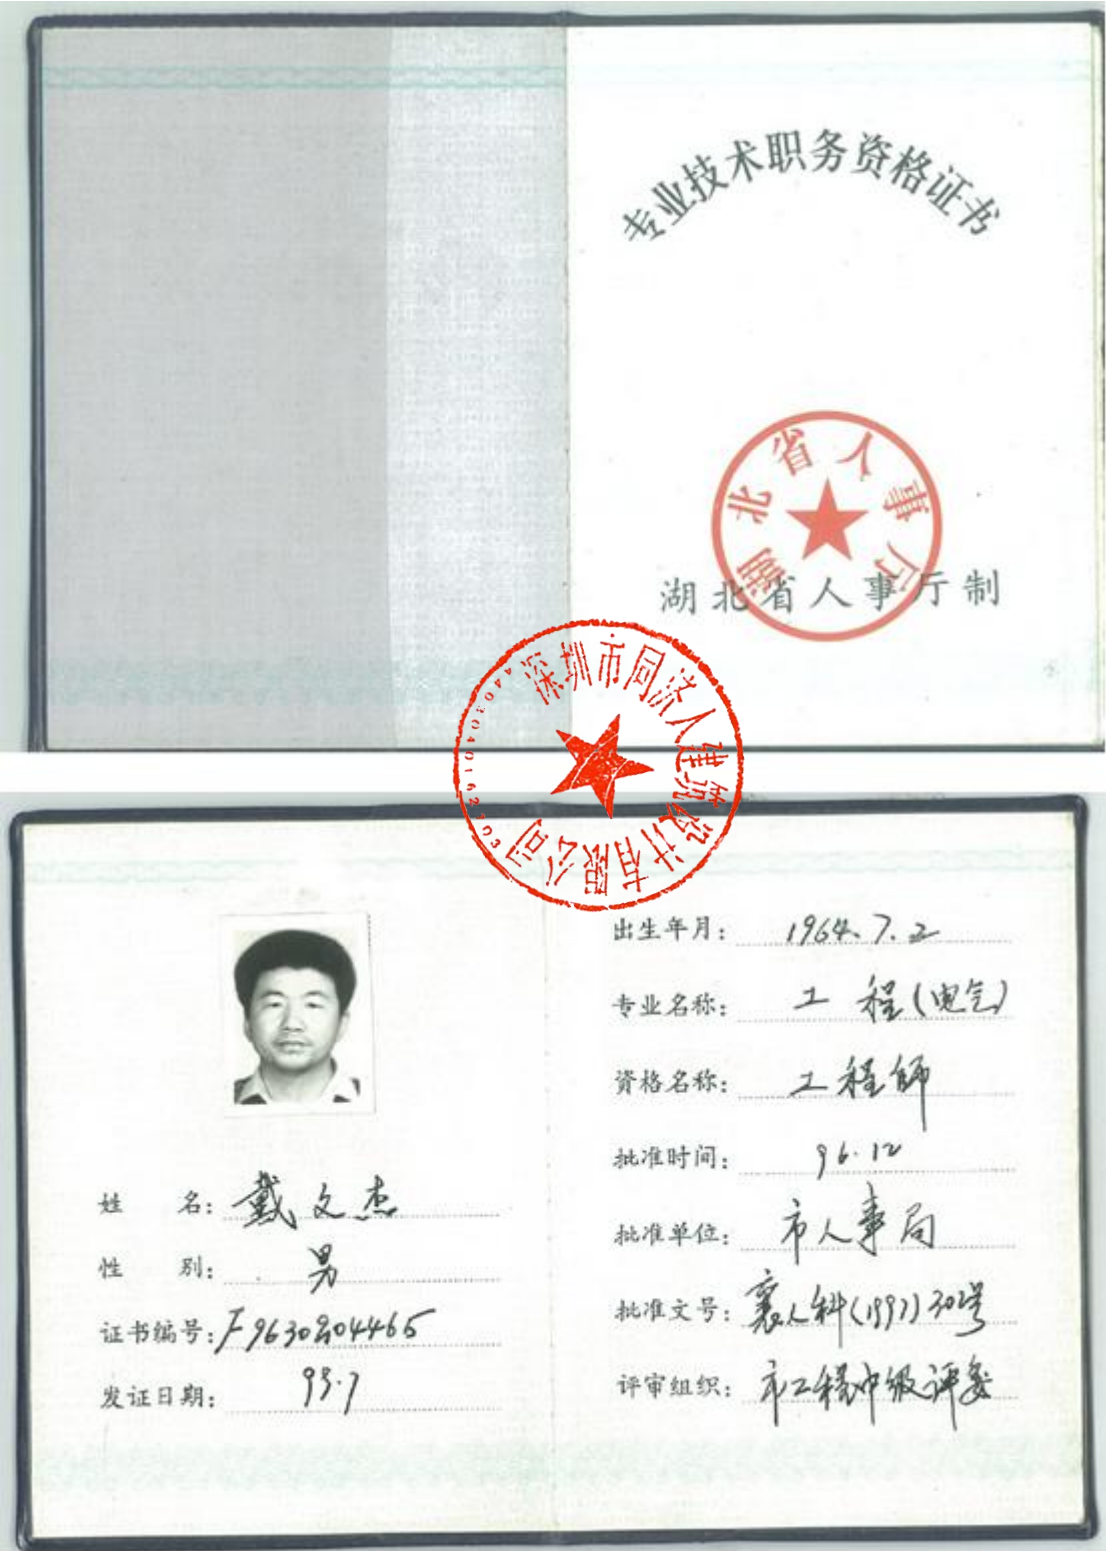 专业技术职务资格证书
湖北省人事厅
湖北省人事厅制
深圳市同济人建筑设计有限公司
姓 名: 戴文杰
性 别: 男
证书编号:
发证日期:
出生年月: 1964.7.2
专业名称: 工程(电气)
资格名称: 工程师
批准时间: 96.12
批准单位: 市人事局
批准文号: 襄人科(1997)302号
评审组织: 市工程中级评委